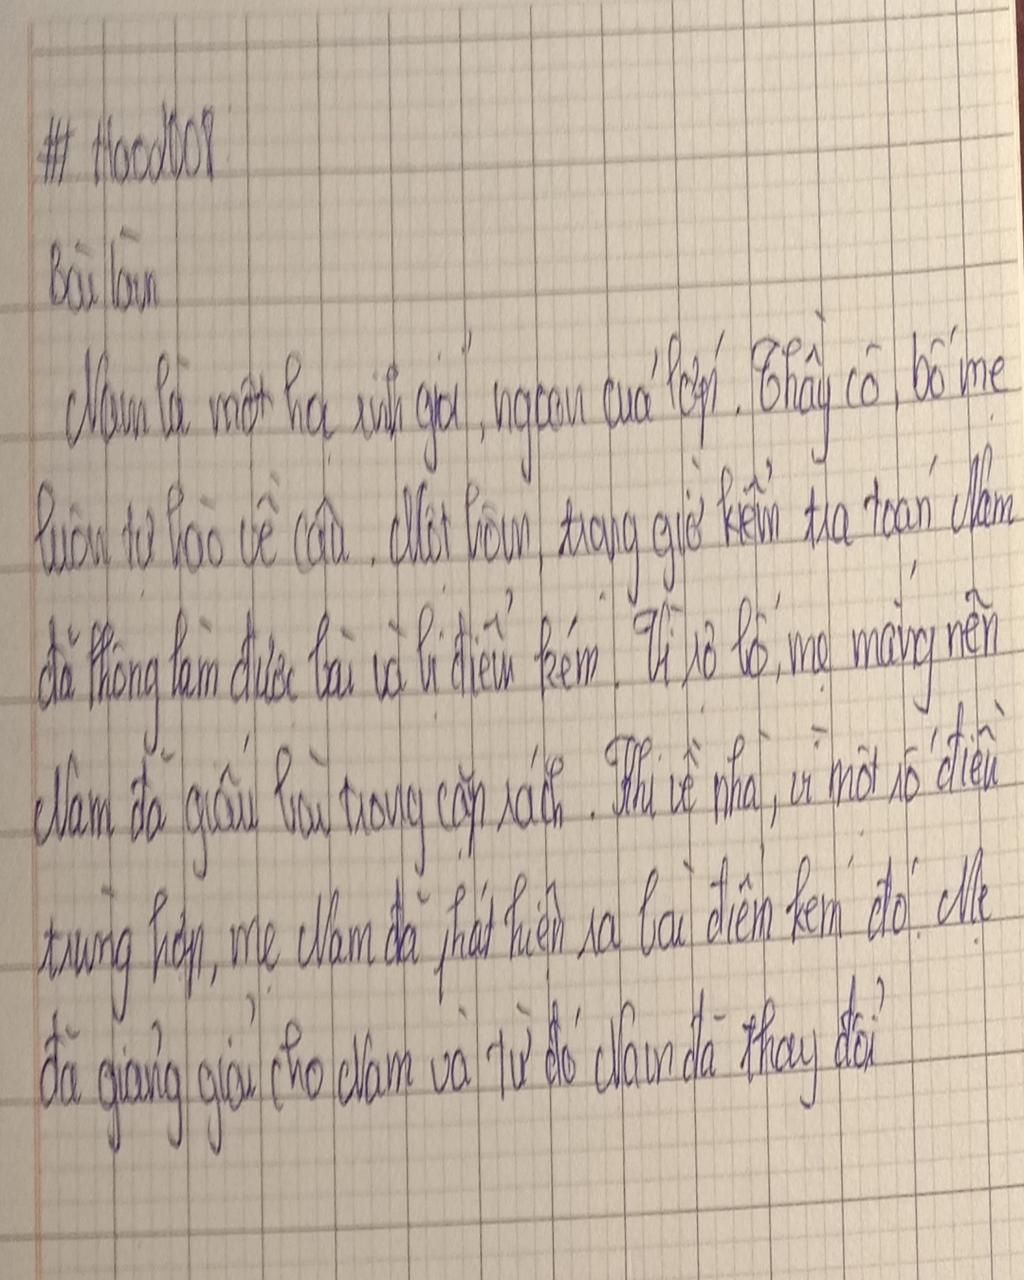 # Hocd008
Bài làm
Nam là một học sinh giỏi, ngoan của lớp. Thầy cô, bố mẹ
luôn tự hào về cậu. Một hôm, trong giờ kiểm tra toán Nam
đã không làm được bài và bị điểm kém. Vì sợ bố, mẹ mắng nên
Nam đã giấu bài trong cặp sách. Khi về nhà, vì một số điều
trùng hợp, mẹ Nam đã phát hiện ra bài điểm kém đó. Mẹ
đã giảng giải cho Nam và từ đó Nam đã thay đổi